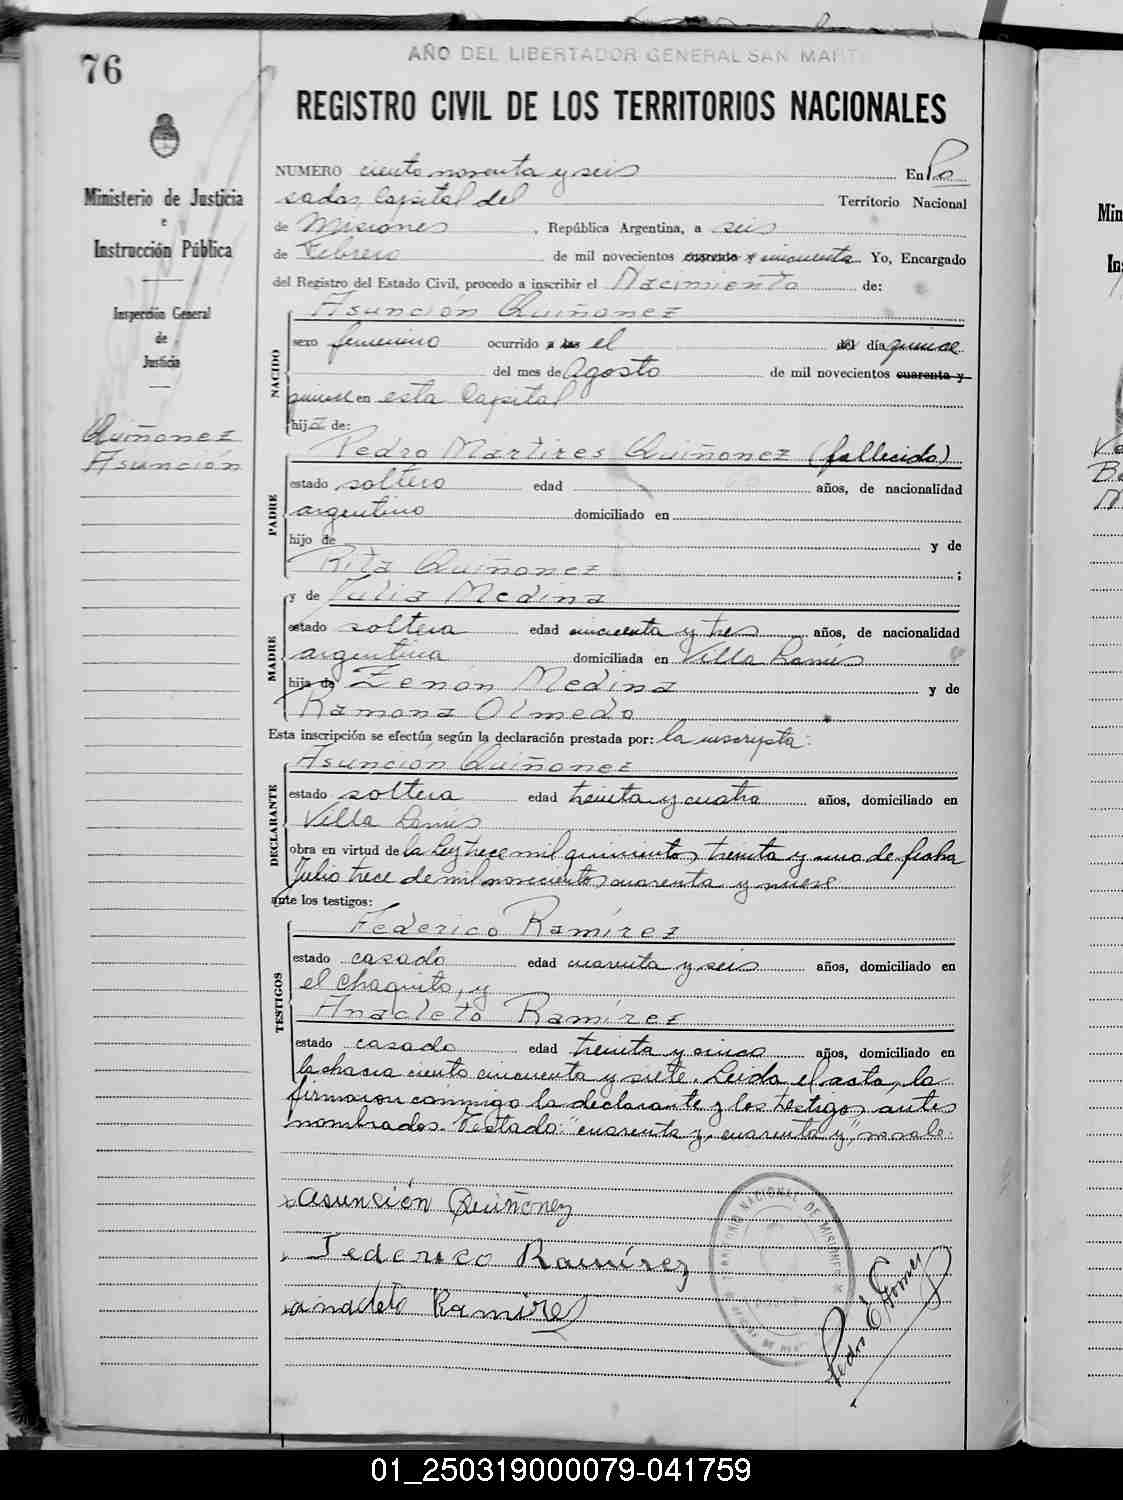 76
AÑO DEL LIBERTADOR GENERAL SAN MARTIN
REGISTRO CIVIL DE LOS TERRITORIOS NACIONALES
Ministerio de Justicia
e
Instrucción Pública
Inspección General
de
Justicia
Quiñonez
Asunción
NUMERO ciento noventa y seis En Po
sadas, Capital del Territorio Nacional
de Misiones, República Argentina, a seis
de Febrero de mil novecientos cuarenta y cincuenta Yo, Encargado
del Registro del Estado Civil, procedo a inscribir el Nacimiento de:
NACIDO
Asunción Quiñonez
sexo femenino ocurrido a las el del día quince
del mes de Agosto de mil novecientos cuarenta y
quince en esta Capital
hija de:
PADRE
Pedro Martires Quiñonez (fallecido)
estado soltero edad años, de nacionalidad
argentino domiciliado en
hijo de y de
Rita Quiñonez ;
MADRE
y de Julia Medina
estado soltera edad cincuenta y tres años, de nacionalidad
argentina domiciliada en Villa Lanús
hija de Zenón Medina y de
Ramona Olmedo
Esta inscripción se efectúa según la declaración prestada por: la inscripta:
DECLARANTE
Asunción Quiñonez
estado soltera edad treinta y cuatro años, domiciliado en
Villa Lanús
obra en virtud de la Ley trece mil quinientos treinta y uno de fecha
Julio trece de mil novecientos cuarenta y nueve
ante los testigos:
TESTIGOS
Federico Ramírez
estado casado edad cuarenta y seis años, domiciliado en
el Chaquito, y
Anacleto Ramírez
estado casado edad treinta y cinco años, domiciliado en
la chacra ciento cincuenta y siete. Leida el acta, la
firmaron conmigo la declarante y los testigos antes
nombrados. Testado: "cuarenta y, cuarenta y", no vale.
Asunción Quiñonez
Federico Ramírez
anacleto Ramirez
TERRITORIO NACIONAL DE MISIONES
Pedro E Gomez
Min
01_250319000079-041759